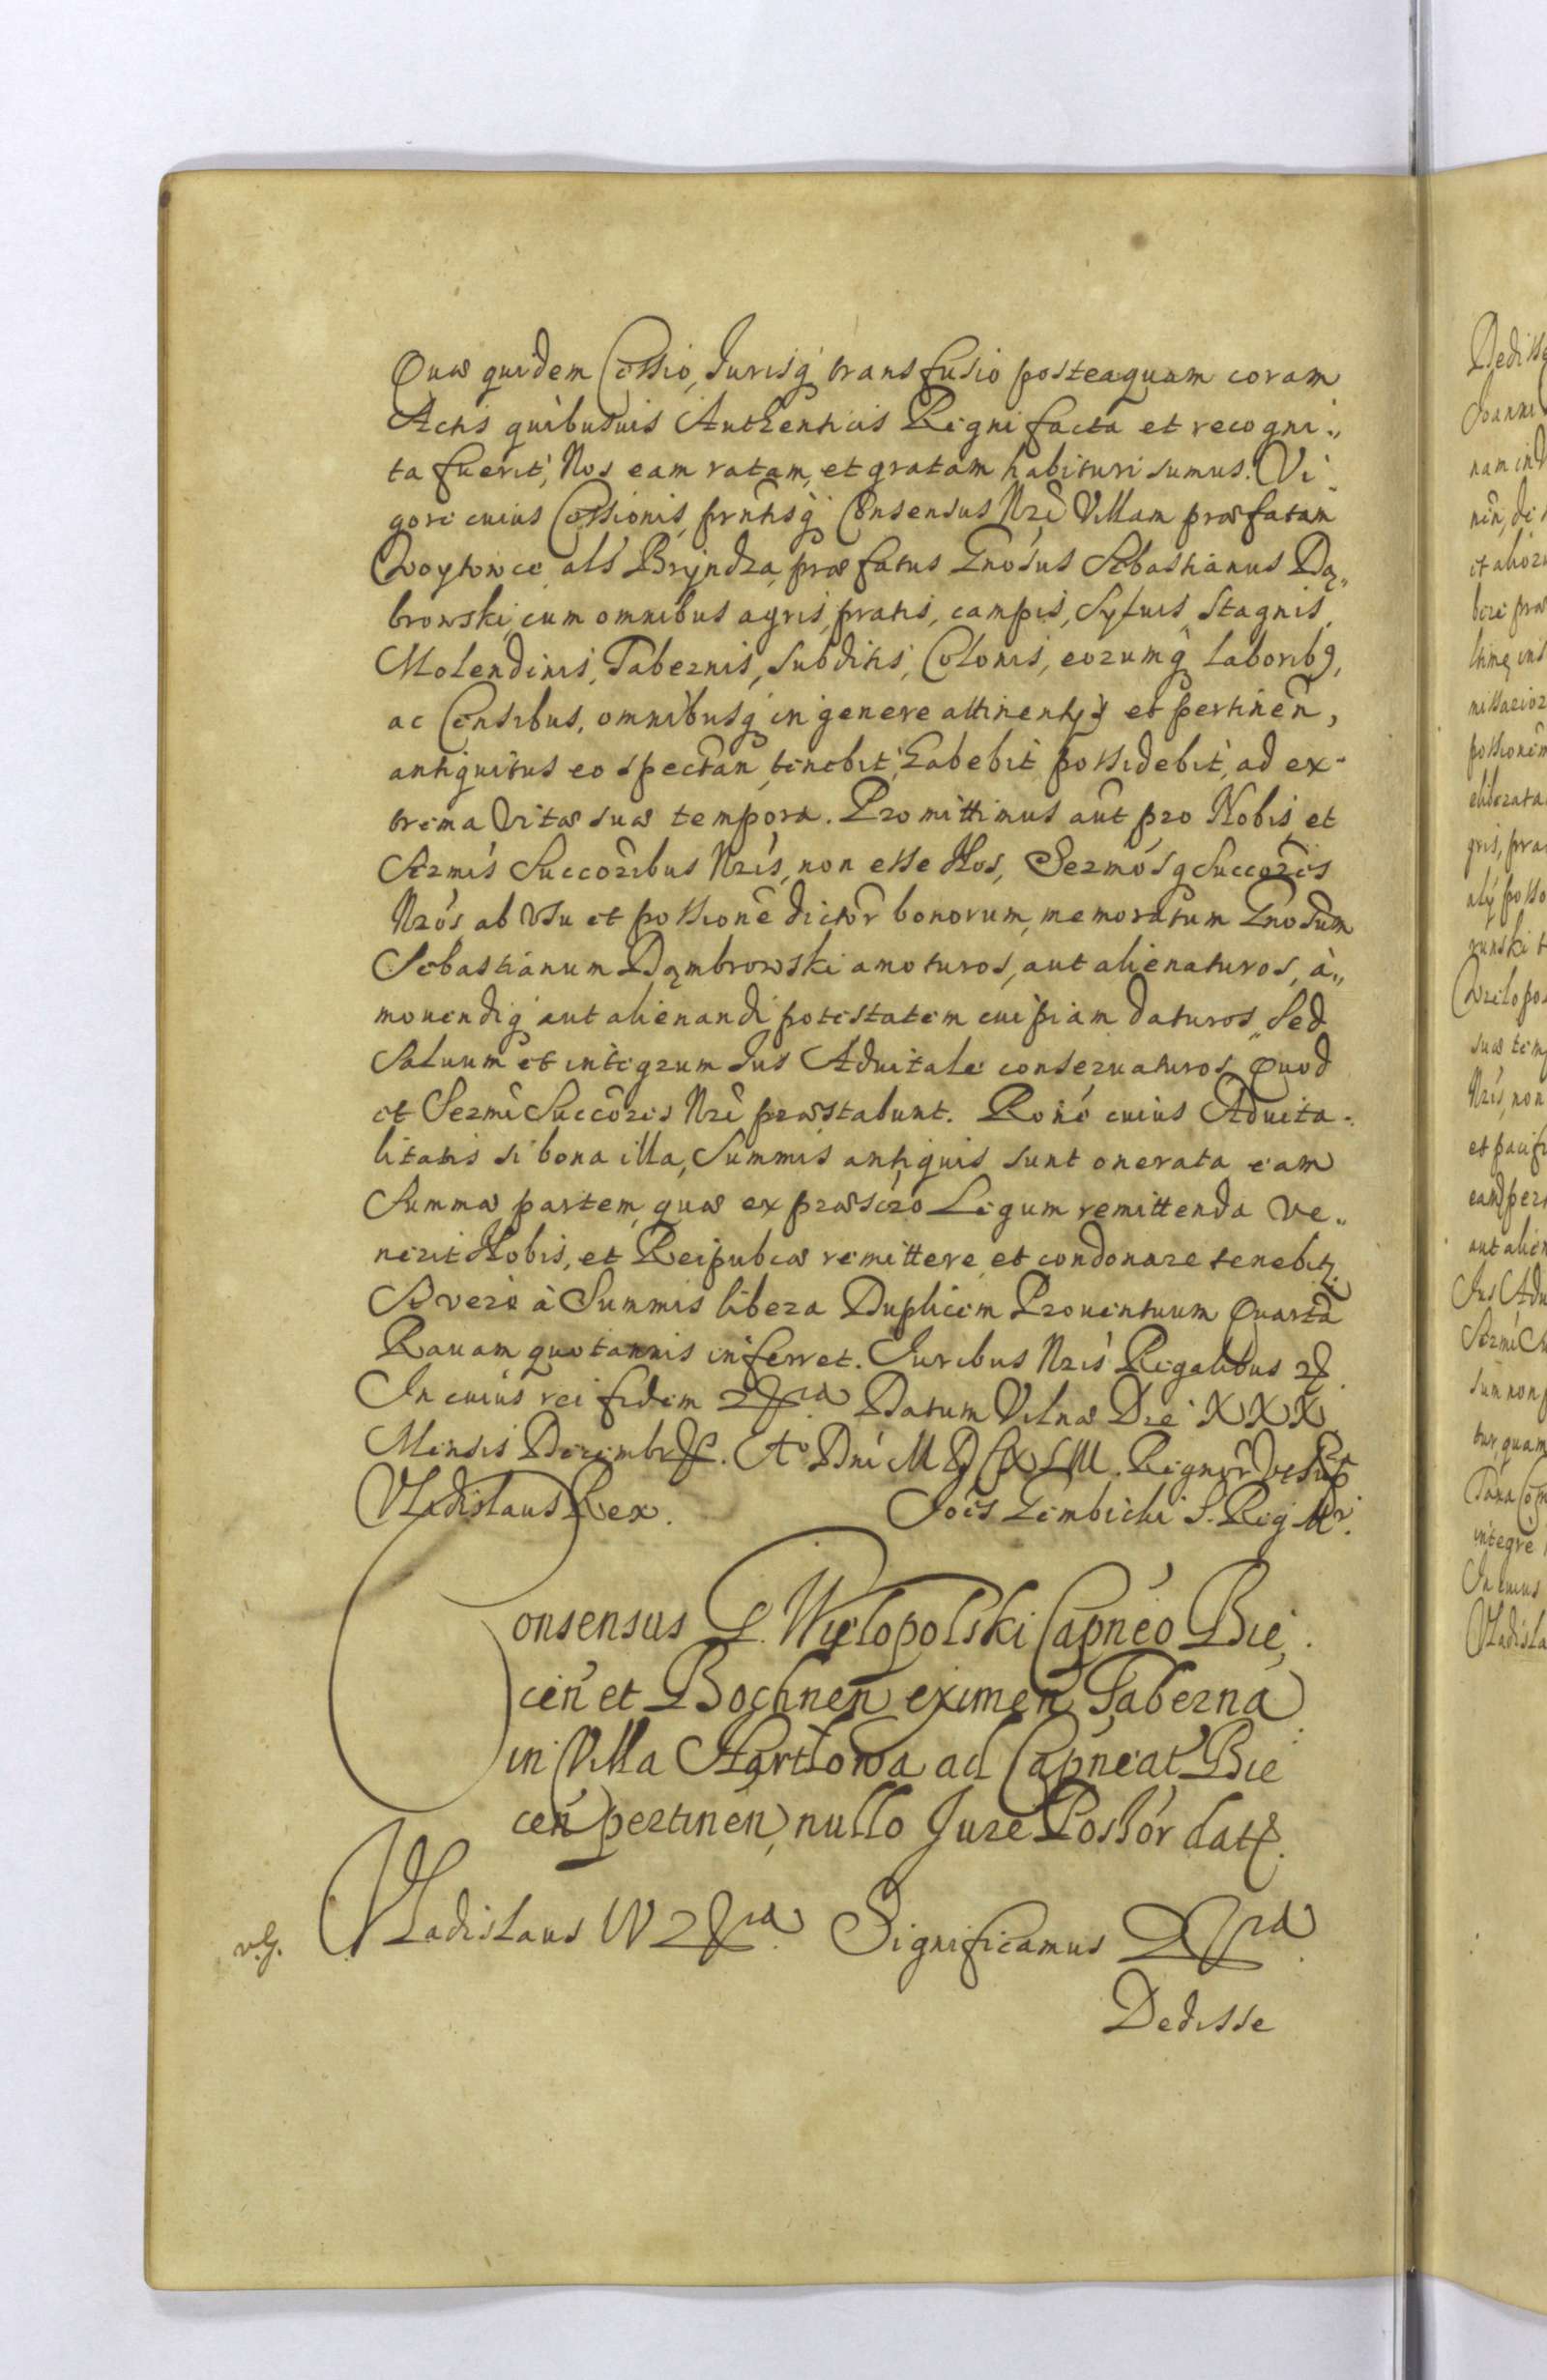 Quæ quidem Cessio, Jurisq́ transfusio posteaquam coram
Actis quibusuis Authenticis Regni facta et recogni„
ta fuerit, Nos eam ratam, et gratam habituri sumus. Vi
gore cuius Cessionis, prñtisq́ Consensus Nrĩ Villam præfatam
Woytowce als Bryndza, præfatus Gnosus Sebastianus Dą„
browski, cum omnibus agris, pratis, campis, Syluis, Stagnis,
Molendinis, Tabernis, Subditis, Colonis, eorumq́ laborib9,
ac Censibus, omnibusq́ in genere attinentÿs et pertineñ,
antiquitus eo spectañ, tenebit, habebit possidebit, ad ex-
trema Vitæ suæ tempora. Promittimus aũt pro Nobis et
Sermis Succõribus Nrĩs, non esse Nos, Sermosq Succõres
Nrõs ab Vsu et possione dictõr bonorum, memoratum Gnosum
Sebastianum Dąmbrowski amoturos, aut alienaturos, a„
mouendiq́ aut alienandi potestatem cuipiam daturos, Sed
Saluum et integrum Jus Aduitale conseruaturos, Quod
et Sermi Succõres Nrĩ præstabunt. Roné cuius Aduita-
litatis si bona illa, Summis antiquis sunt onerata eam
Summæ partem, quæ ex præscrõ Legum remittenda ve„
nerit Nobis, et Reipubcæ remittere et condonare tenebitr.
Si verò à Summis libera Duplicem Prouentuum Quartã
Rauam quotannis inferret. Juribus Nrĩs Regalibus
In cuius rei fidem Datum Vilnæ Die XXX
Mensis Decembr. Ao Dni Regnõr
Vladislaus Rex. Jois Gembicki S. Reg Mr.
Consensus G. Wielopolski Capneo Bie
ceñ et Bochneñ eximeñ Tabernã
in Villa Harklowa ad Capneat Bie
ceñ pertineñ, nullo Jure Possõr dat.
Vladislaus IV Significamus
Dedisse